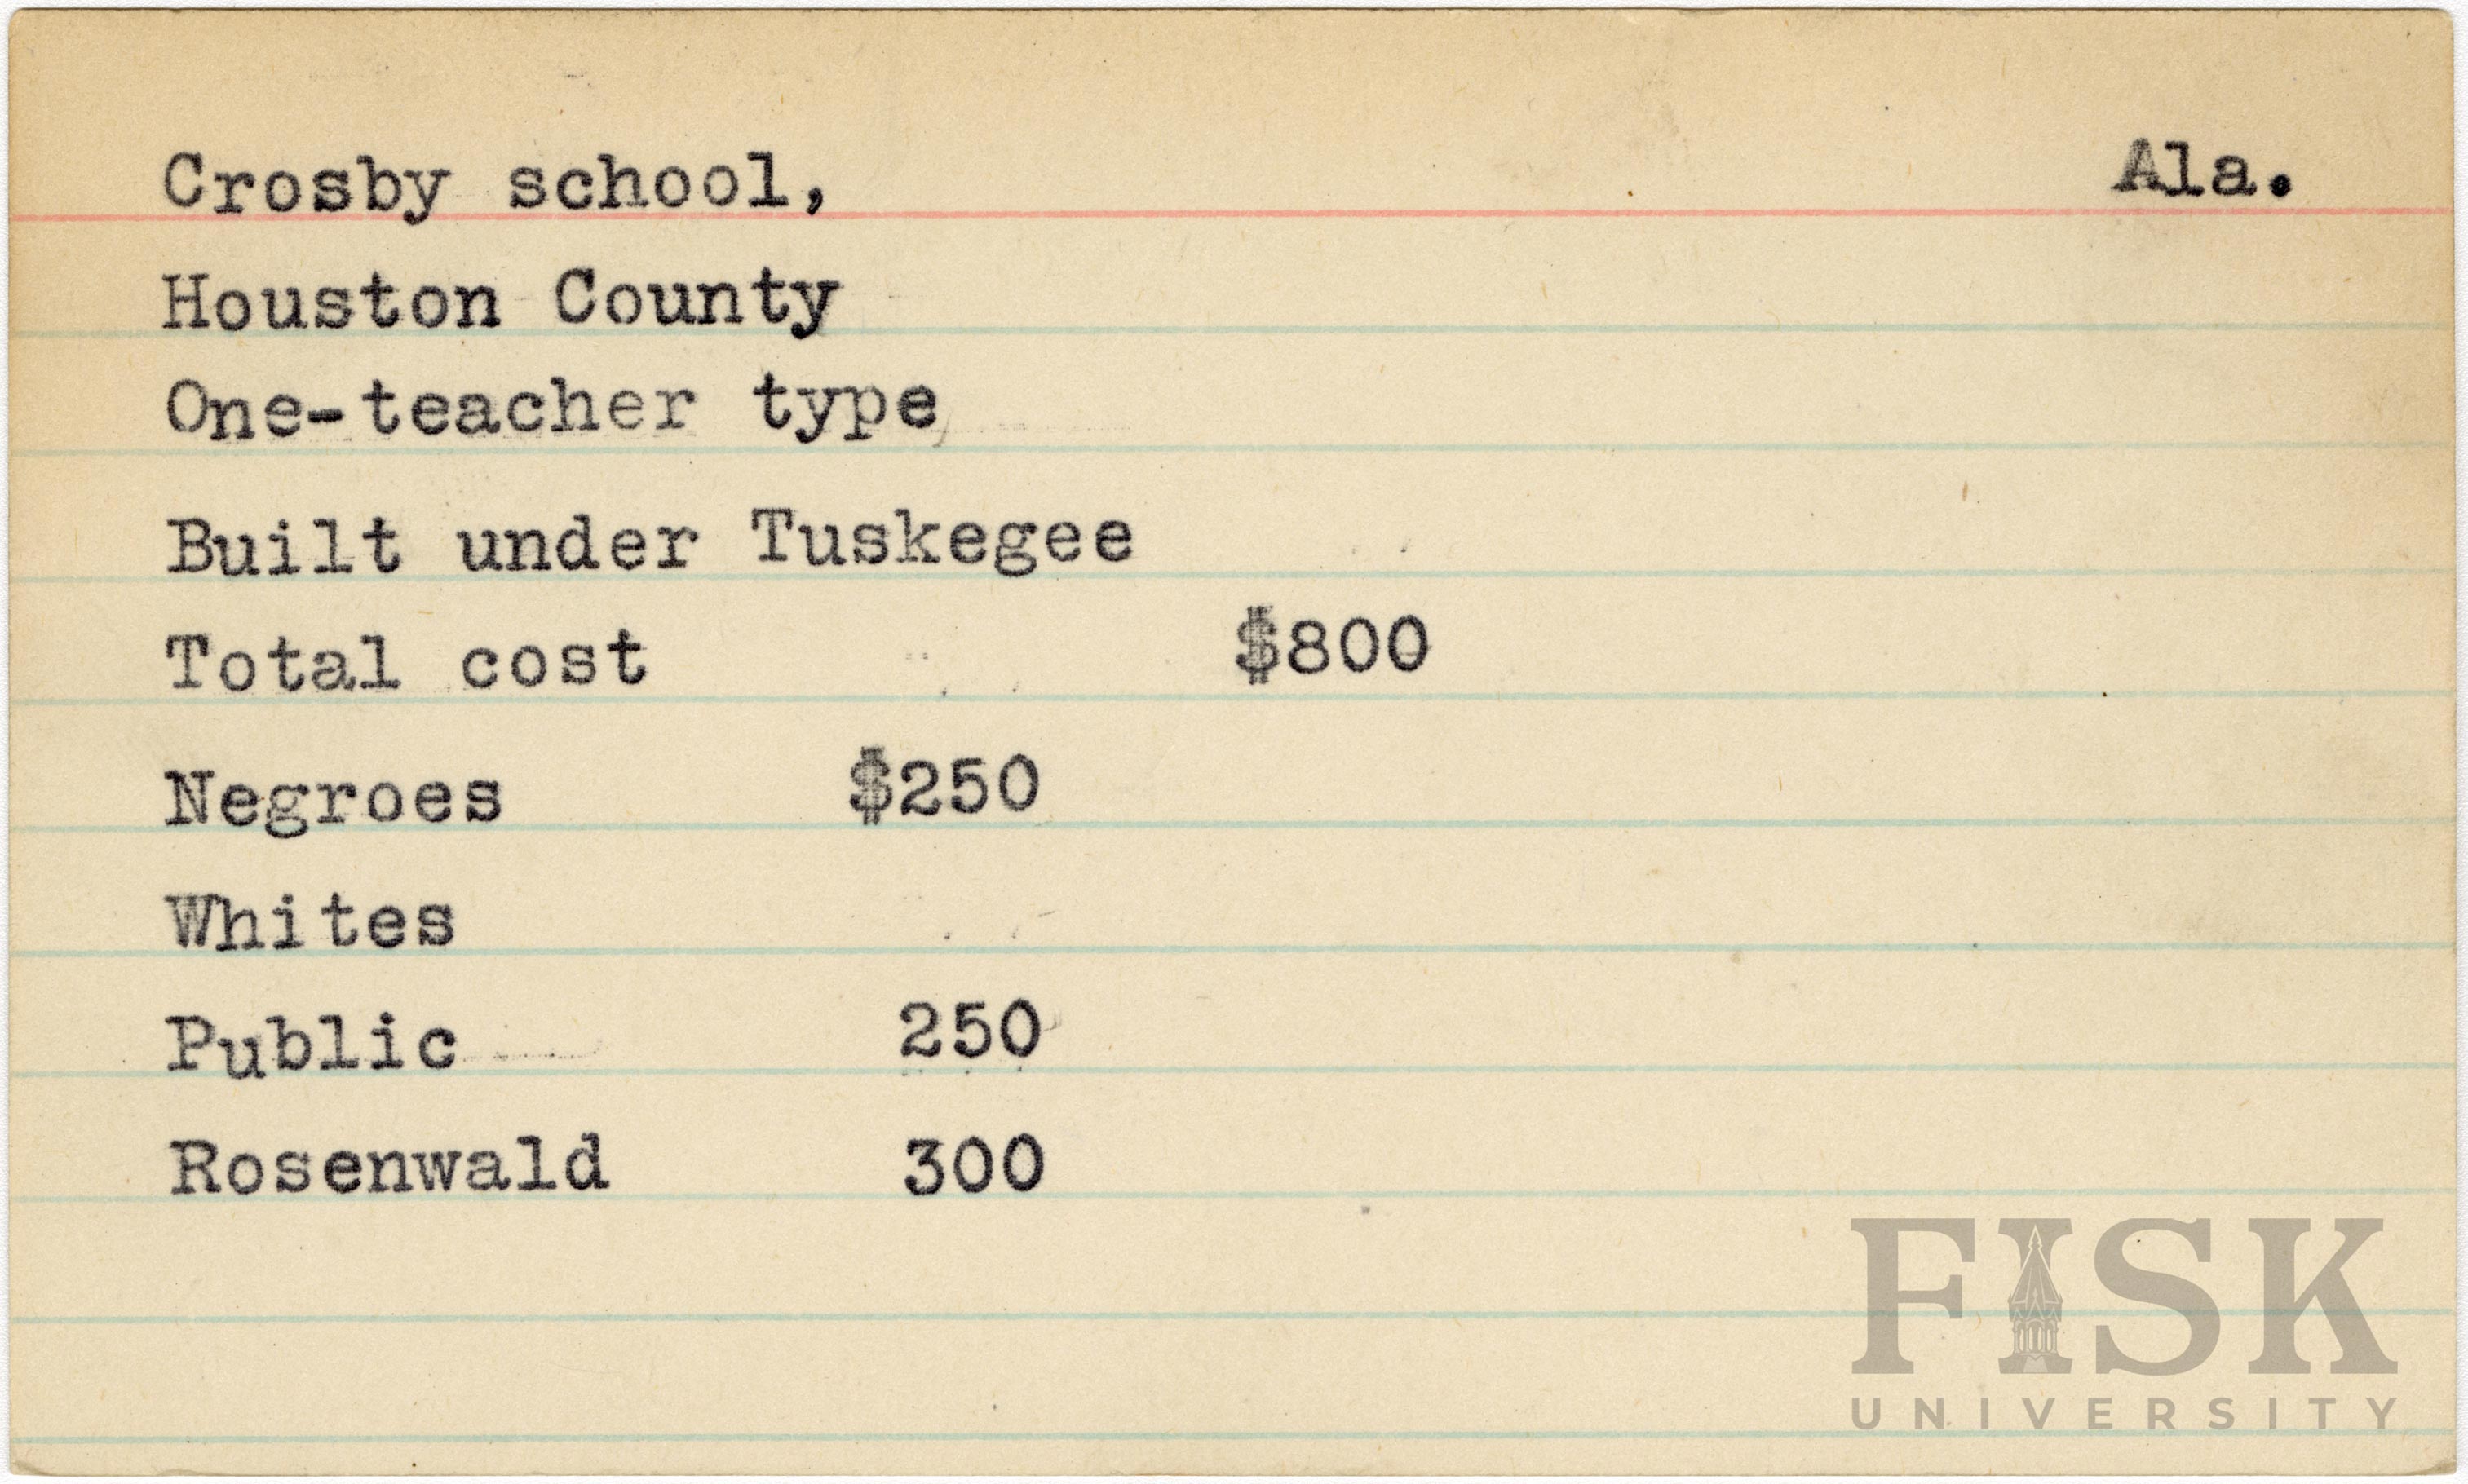 Crosby school, Ala.
Houston County
One-teacher type
Built under Tuskegee
Total cost $800
Negroes $250
Whites
Public 250
Rosenwald 300
FISK
UNIVERSITY